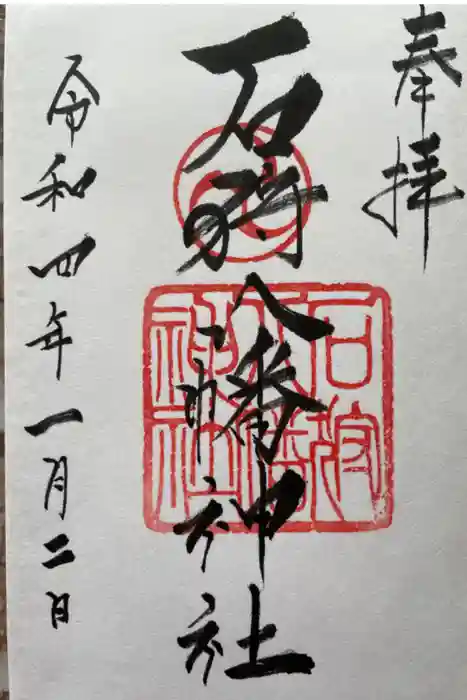 奉拝
石狩八幡神社
令和四年一月二日
石狩
八幡
神社